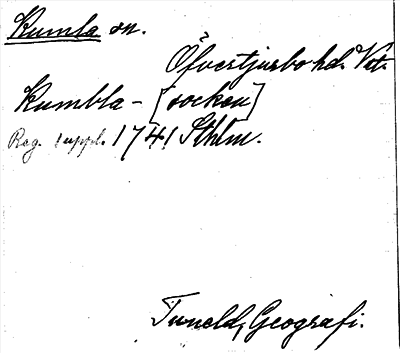 Kumla sn.
Öfvertjurbo hd. Vstm.
Kumbla - [socken]
Reg. suppl. 1741 Sthlm.
Tuneld, Geografi.